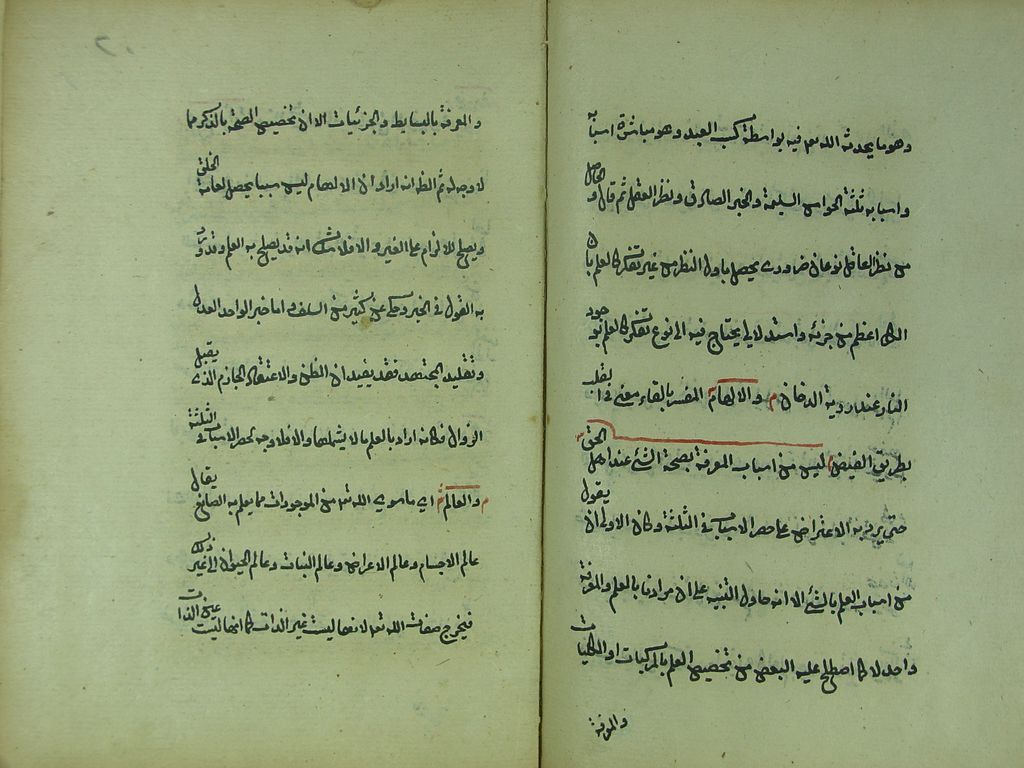 وهو ما يحدثه الله تعم فيه بواسطة كسب العبد وهو مباشرة اسبابه
واسبابه ثلثة الحواس السليمة والخبر الصادق ونظر العقل ثم قال والحاصل
من نظر العاقل نوعان ضروري يحصل باول النظر من غير تفكر كالعلم بان
الكل اعظم من جزئه واستدلالي يحتاج فيه الى نوع تفكر كالعلم بوجود
النار عند رؤية الدخان م والالهام المفسر بالقاء معنى في القلب
بطريق الفيض ليس من اسباب المعرفة بصحة الشئ عند اهل الحق
حتى يرد به الاعتراض على حصر الاسباب في الثلثة وكان الاولى ان يقول
من اسباب العلم بالشئ الا انه حاول التنبيه على ان مرادنا بالعلم والمعرفة
واحد لا كما اصطلح عليه البعض من تخصيص العلم بالمركبات او الكليات
والمعرفة
والمعرفة بالبسايط والجزئيات الا ان تخصيص الصحة بالذكر مما
لا وجه له ثم الظ انه اراد ان الالهام ليس سببا يحصل لعامة الخلق
ويصلح للالزام على الغير والا فلا شك انه قد يصلح به العلم وقد ورد
به القول في الخبر وحكى عن كثير من السلف واما خبر الواحد العدل
وتقليد المجتهد فقد يفيدان الظن والاعتقاد الجازم الذي يقبل
الزوال فكانه اراد بالعلم ما لا يشملهما والا فلا وجه لحصر الاسباب في الثلثة
م والعالم اي ما سوى الله تعم من الموجودات مما يعلم به الصانع يقال
عالم الاجسام وعالم الاعراض وعالم النبات وعالم الحيوان الى غير ذلك
فيخرج صفات الله تعم لانها ليست غير الذات كما انها ليست عين الذات